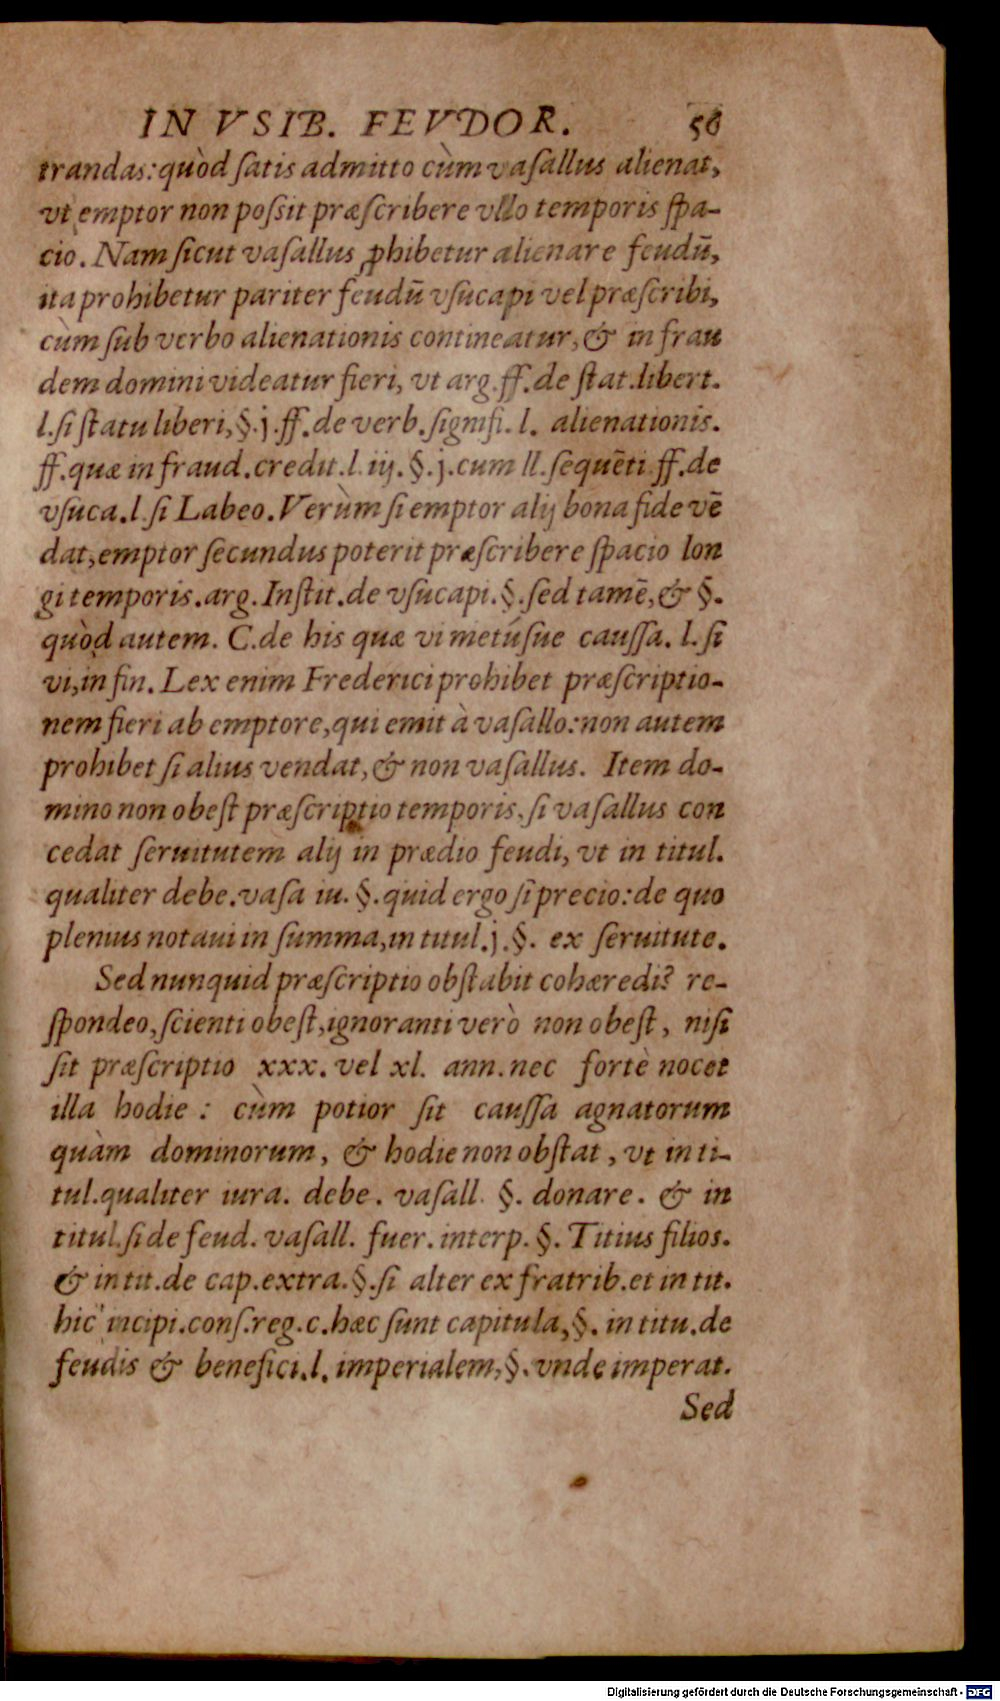 IN VSIB. FEVDOR. 56
trandas: quòd ſatis admitto cùm vaſallus alienat,
vt emptor non poſsit præſcribere vllo temporis ſpa-
cio. Nam ſicut vaſallus ꝓhibetur alienare feudū,
ita prohibetur pariter feudū vſucapi vel præſcribi,
cùm ſub verbo alienationis contineatur, & in frau
dem domini videatur fieri, vt arg. ff. de ſtat. libert.
l. ſi ſtatu liberi, §. j. ff. de verb. ſignifi. l. alienationis.
ff. quæ in fraud. credit. l. iij. §. j. cum ll. ſequēti ff. de
vſuca. l. ſi Labeo. Verùm ſi emptor alij bona fide vē
dat, emptor ſecundus poterit præſcribere ſpacio lon
gi temporis. arg. Inſtit. de vſucapi. §. ſed tamē, & §.
quòd autem. C. de his quæ vi metúſue cauſſa. l. ſi
vi, in fin. Lex enim Frederici prohibet præſcriptio-
nem fieri ab emptore, qui emit à vaſallo: non autem
prohibet ſi alius vendat, & non vaſallus. Item do-
mino non obeſt præſcriptio temporis, ſi vaſallus con
cedat ſeruitutem alij in prædio feudi, vt in titul.
qualiter debe. vaſa iu. §. quid ergo ſi precio: de quo
plenius notaui in ſumma, in titul. j. §. ex ſeruitute.
Sed nunquid præſcriptio obſtabit cohæredi? re-
ſpondeo, ſcienti obeſt, ignoranti verò non obeſt, niſi
ſit præſcriptio xxx. vel xl. ann. nec fortè nocet
illa hodie : cùm potior ſit cauſſa agnatorum
quàm dominorum, & hodie non obſtat, vt in ti-
tul. qualiter iura. debe. vaſall. §. donare. & in
titul. ſi de feud. vaſall. fuer. interp. §. Titius filios.
& in tit. de cap. extra. §. ſi alter ex fratrib. et in tit.
hic incipi. conſ. reg. c. hæc ſunt capitula, §. in titu. de
feudis & benefici. l. imperialem, §. vnde imperat.
Sed
Digitalisierung gefördert durch die Deutsche Forschungsgemeinschaft - DFG